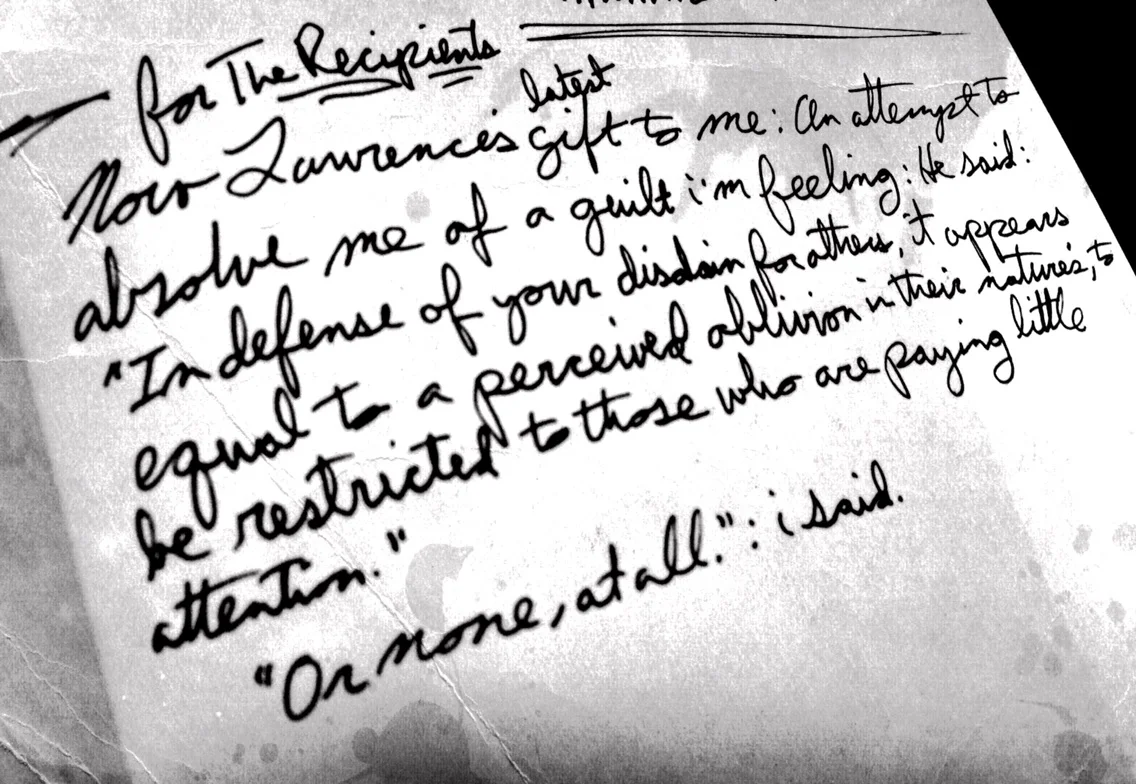 — for The Recipients
Now Lawrence's latest gift to me: An attempt to
absolve me of a guilt i'm feeling: He said:
"In defense of your disdain for others, it appears
equal to a perceived oblivion in their nature's, to
be restricted to those who are paying little
attention."
"Or none, at all.": i said.